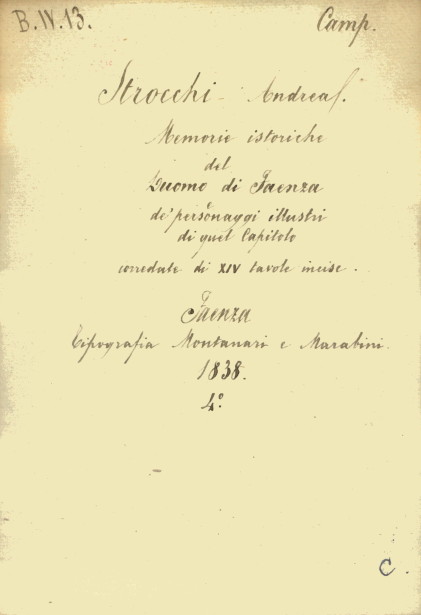 B.IV.13. Camp.
Strocchi - Andrea.
Memorie istoriche
del
Duomo di Faenza
e
de' personaggi illustri
di quel Capitolo
corredate di XIV tavole incise.
Faenza
Tipografia Montanari e Marabini.
1838.
4º
C.